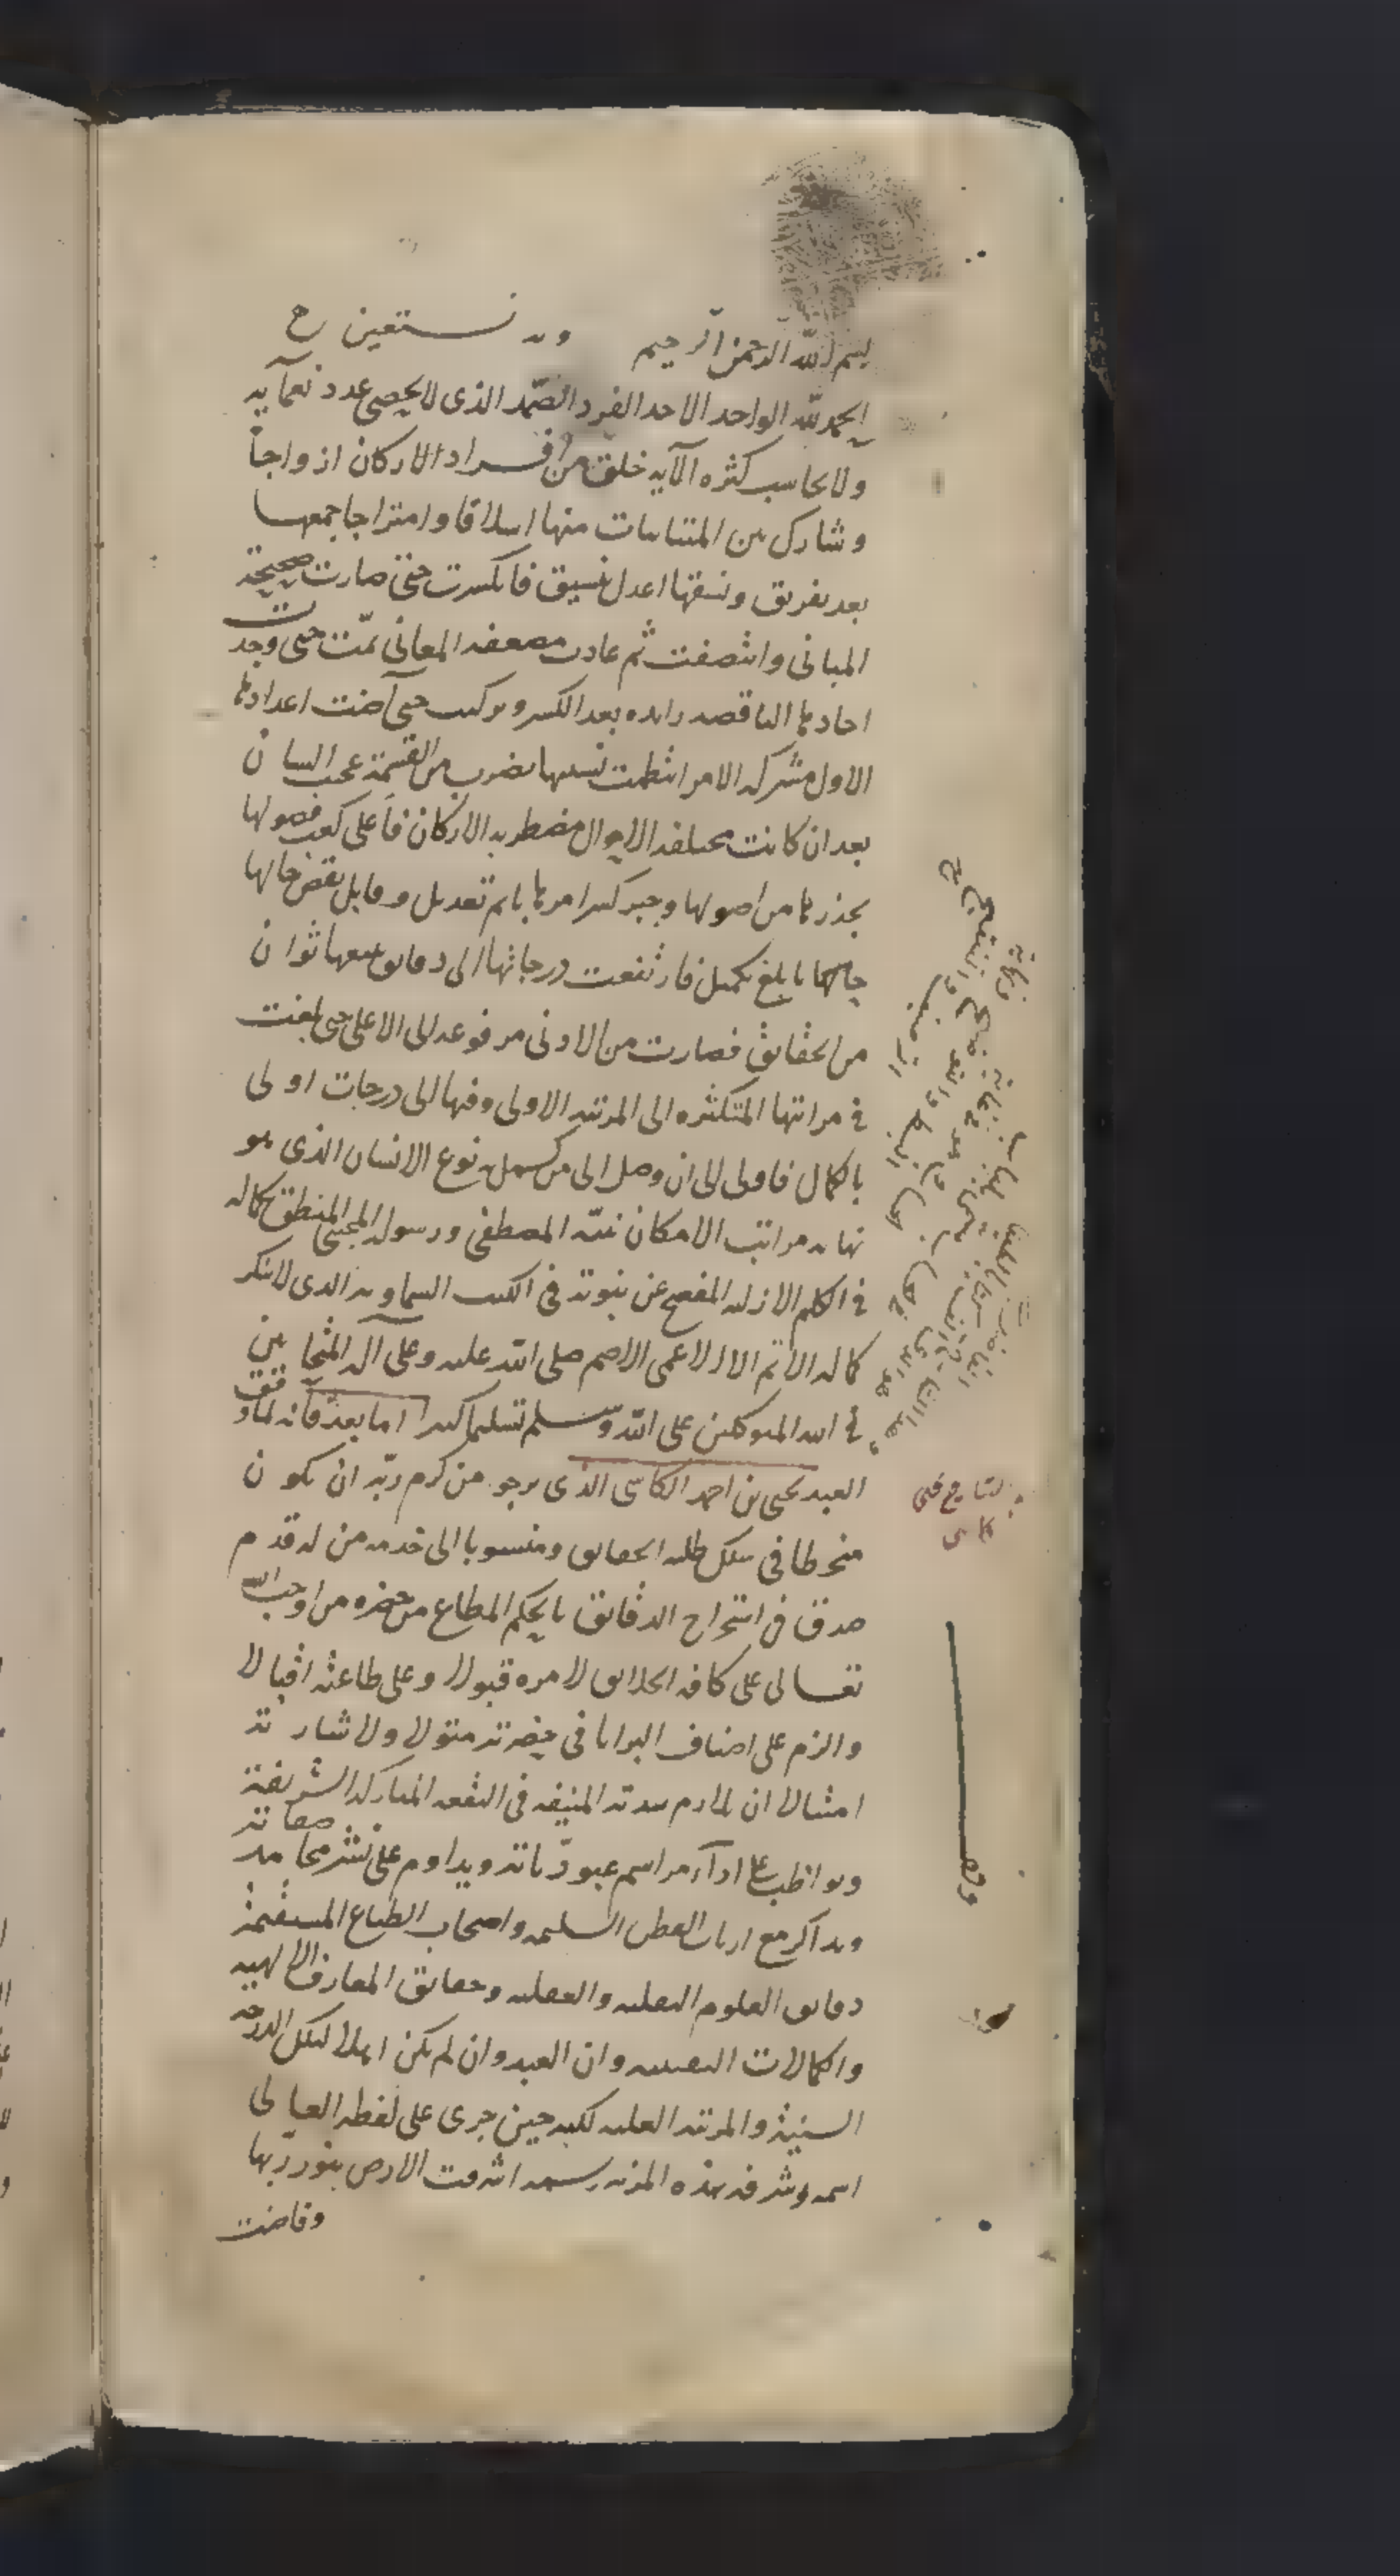 بسم الله الرحمن الرحيم وبه نستعين
الحمد لله الواحد الاحد الفرد الصمد الذى لا يحصى عدد نعمآيه
ولا يحاسب كثره الآيه خلق من افراد الاركان ازواجاً
وشارك بين المتباينات منها ايتلافا وامتزاجا جمعها
بعد تفريق ونسقها اعدل تنسيق فانكسرت حتى صارت صحيحة
المبانى وانتصفت ثم عادت مضعفه المعانى تمّت حتى وجدت
احادها الناقصه زايده بعد الكسر وتركبت حتى آضت اعدادها
الاول مشتركه الامر انتظمت نسبها بضرب من القسمة عجب الشان
بعد ان كانت مختلفه الاحوال مضطربه الاركان فاعلى كعب فصولها
بجذرها من اصولها وجبر كسر امرها باتم تعديل وقابل نقص حالها
بابلغ تكميل فارتفعت درجاتها الى دقايق تتبعها ثوان
من الحقائق فصارت من الادنى مرفوعه الى الاعلى حتى بلغت
فى مراتبها المتكثره الى المرتبه الاولى وفيها الى درجات اولى
بالكمال فاولى الى ان وصل الى من كمل به نوع الانسان الذى هو
نهايه مراتب الامكان نبيّه المصطفى ورسوله المجتبى المنطق كماله
فى الكلم الازليه المفصح عن نبوته فى الكتب السماويه الذى لا ينكر
كماله الاتم الا الاعمى الاصم صلى الله عليه وعلى آله المتحابين
فى الله المتوكلين على الله وسلم تسليما كثيرا اما بعد فانه لما وفق
العبد يحيى بن احمد الكاشى الذى يرجو من كرم ربّه ان يكون
منخرطا فى سلك طلبه الحقايق ومنسوبا الى خدمه من له قدم
صدق فى استخراج الدقائق بالحكم المطاع من حضره من اوجب الله
تعالى على كافه الخلايق لامره قبولا وعلى طاعته اقبالا
والزم على اصناف البرايا فى حضرته مثولا ولاشارته
امتثالا ان يلازم سدته المنيفه فى البقعه المباركه الشريفة
ويواظب على ادآء مراسم عبوديّاته ويداوم على نشر محامد صفاته
ويذاكر مع ارباب الفطن السليمه واصحاب الطباع المستقيمة
دقايق العلوم النقليه والعقليه وحقايق المعارف الالهيه
والكمالات النفسيه وان العبد وان لم يكن اهلا لتلك الدرجه
السنية والمرتبه العليه لكنه حين جرى على لفظه العالى
اسمه وشرفه بهذه المزيه رسمه اشرقت الارض بنور ربها
وفاضت